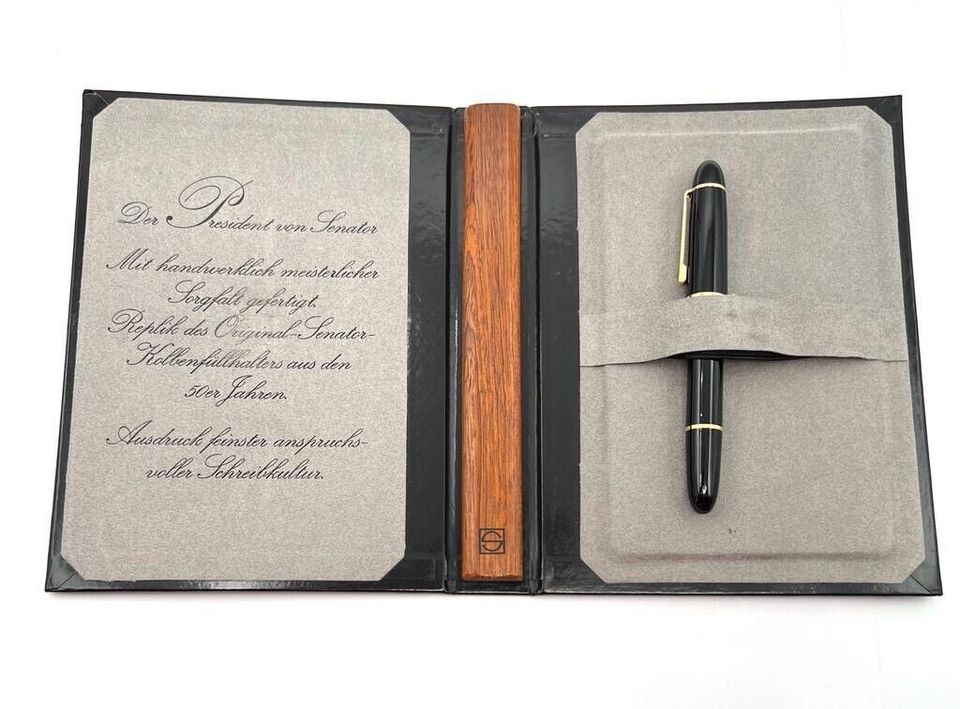 Der President von Senator
Mit handwerklich meisterlicher
Sorgfalt gefertigt.
Replik des Original-Senator-
Kolbenfüllhalters aus den
50er Jahren.
Ausdruck feinster anspruchs-
voller Schreibkultur.